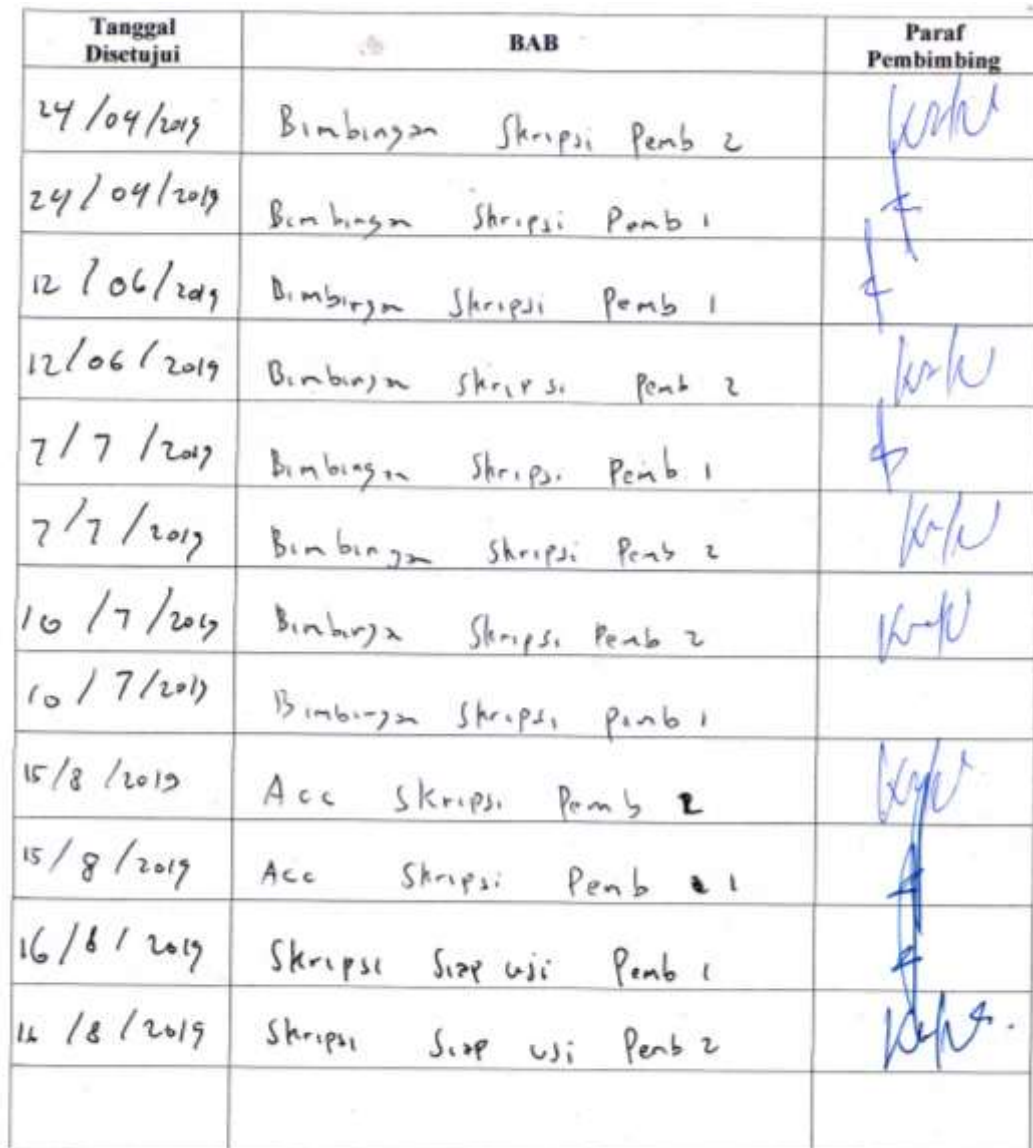 Tanggal Disetujui BAB Paraf Pembimbing
24/04/2019 Bimbingan Skripsi Pemb 2
24/04/2019 Bimbingan Skripsi Pemb 1
12/06/2019 Bimbingan Skripsi Pemb 1
12/06/2019 Bimbingan Skripsi Pemb 2
7/7/2019 Bimbingan Skripsi Pemb 1
7/7/2019 Bimbingan Skripsi Pemb 2
10/7/2019 Bimbingan Skripsi Pemb 2
10/7/2019 Bimbingan Skripsi Pemb 1
15/8/2019 Acc Skripsi Pemb 2
15/8/2019 Acc Skripsi Pemb 1
16/8/2019 Skripsi Siap uji Pemb 1
16/8/2019 Skripsi Siap uji Pemb 2